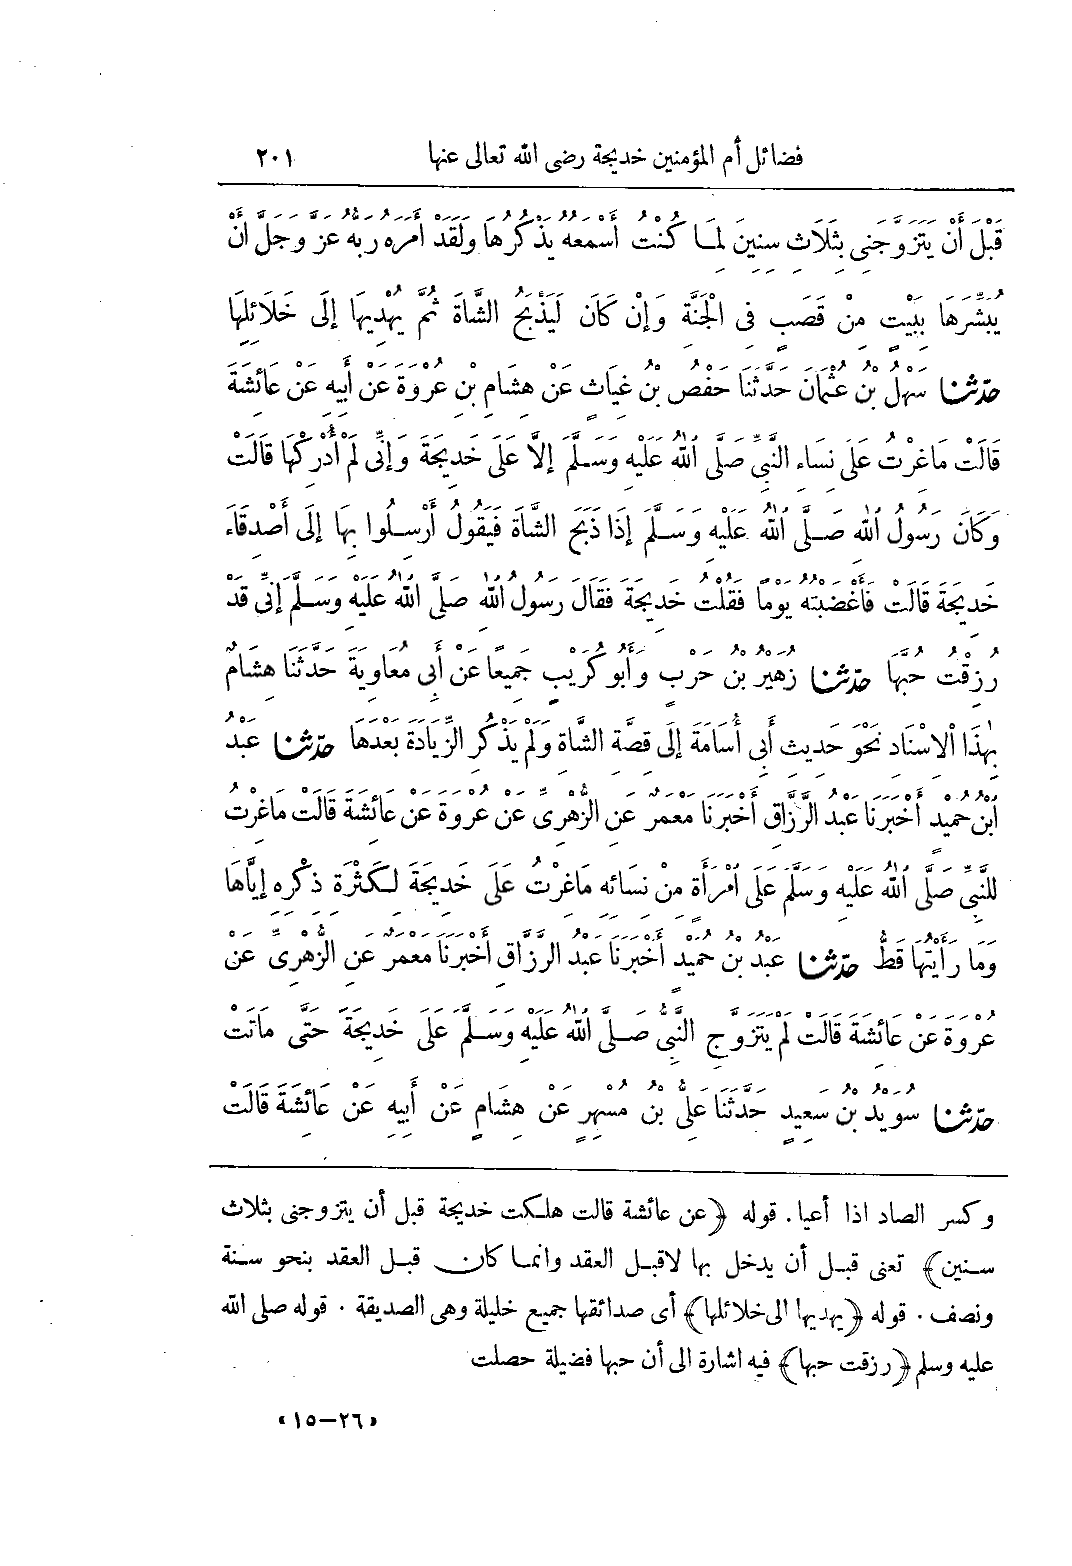 فضائل أم المؤمنين خديجة رضى الله تعالى عنها ٢٠١
قَبْلَ أَنْ يَتَزَوَّجَنِى بِثَلَاثِ سِنِينَ لِمَا كُنْتُ أَسْمَعُهُ يَذْكُرُهَا وَلَقَدْ أَمَرَهُ رَبُّهُ عَزَّ وَجَلَّ أَنْ
يُبَشِّرَهَا بِبَيْتٍ مِنْ قَصَبٍ فِى الْجَنَّةِ وَإِنْ كَانَ لَيَذْبَحُ الشَّاةَ ثُمَّ يُهْدِيهَا إِلَى خَلَائِلِهَا
حَدَّثَنَا سَهْلُ بْنُ عُثْمَانَ حَدَّثَنَا حَفْصُ بْنُ غِيَاثٍ عَنْ هِشَامِ بْنِ عُرْوَةَ عَنْ أَبِيهِ عَنْ عَائِشَةَ
قَالَتْ مَا غِرْتُ عَلَى نِسَاءِ النَّبِيِّ صَلَّى اللهُ عَلَيْهِ وَسَلَّمَ إِلَّا عَلَى خَدِيجَةَ وَإِنِّى لَمْ أُدْرِكْهَا قَالَتْ
وَكَانَ رَسُولُ اللهِ صَلَّى اللهُ عَلَيْهِ وَسَلَّمَ إِذَا ذَبَحَ الشَّاةَ فَيَقُولُ أَرْسِلُوا بِهَا إِلَى أَصْدِقَاءِ
خَدِيجَةَ قَالَتْ فَأَغْضَبْتُهُ يَوْمًا فَقُلْتُ خَدِيجَةَ فَقَالَ رَسُولُ اللهِ صَلَّى اللهُ عَلَيْهِ وَسَلَّمَ إِنِّى قَدْ
رُزِقْتُ حُبَّهَا حَدَّثَنَا زُهَيْرُ بْنُ حَرْبٍ وَأَبُو كُرَيْبٍ جَمِيعًا عَنْ أَبِى مُعَاوِيَةَ حَدَّثَنَا هِشَامٌ
بِهٰذَا الْاِسْنَادِ نَحْوَ حَدِيثِ أَبِى أُسَامَةَ إِلَى قِصَّةِ الشَّاةِ وَلَمْ يَذْكُرِ الزِّيَادَةَ بَعْدَهَا حَدَّثَنَا عَبْدُ
ابْنُ حُمَيْدٍ أَخْبَرَنَا عَبْدُ الرَّزَّاقِ أَخْبَرَنَا مَعْمَرٌ عَنِ الزُّهْرِىِّ عَنْ عُرْوَةَ عَنْ عَائِشَةَ قَالَتْ مَا غِرْتُ
لِلنَّبِيِّ صَلَّى اللهُ عَلَيْهِ وَسَلَّمَ عَلَى امْرَأَةٍ مِنْ نِسَائِهِ مَا غِرْتُ عَلَى خَدِيجَةَ لِكَثْرَةِ ذِكْرِهِ إِيَّاهَا
وَمَا رَأَيْتُهَا قَطُّ حَدَّثَنَا عَبْدُ بْنُ حُمَيْدٍ أَخْبَرَنَا عَبْدُ الرَّزَّاقِ أَخْبَرَنَا مَعْمَرٌ عَنِ الزُّهْرِىِّ عَنْ
عُرْوَةَ عَنْ عَائِشَةَ قَالَتْ لَمْ يَتَزَوَّجِ النَّبِىُّ صَلَّى اللهُ عَلَيْهِ وَسَلَّمَ عَلَى خَدِيجَةَ حَتَّى مَاتَتْ
حَدَّثَنَا سُوَيْدُ بْنُ سَعِيدٍ حَدَّثَنَا عَلِىُّ بْنُ مُسْهِرٍ عَنْ هِشَامٍ عَنْ أَبِيهِ عَنْ عَائِشَةَ قَالَتْ
وكسر الصاد اذا أعيا. قوله ﴿عن عائشة قالت هلكت خديجة قبل أن يتزوجنى بثلاث
سنين﴾ تعنى قبل أن يدخل بها لا قبل العقد وانما كان قبل العقد بنحو سنة
ونصف. قوله ﴿يهديها الى خلائلها﴾ أى صدائقها جميع خليلة وهى الصديقة. قوله صلى الله
عليه وسلم ﴿رزقت حبها﴾ فيه اشارة الى أن حبها فضيلة حصلت
«٢٦–١٥»